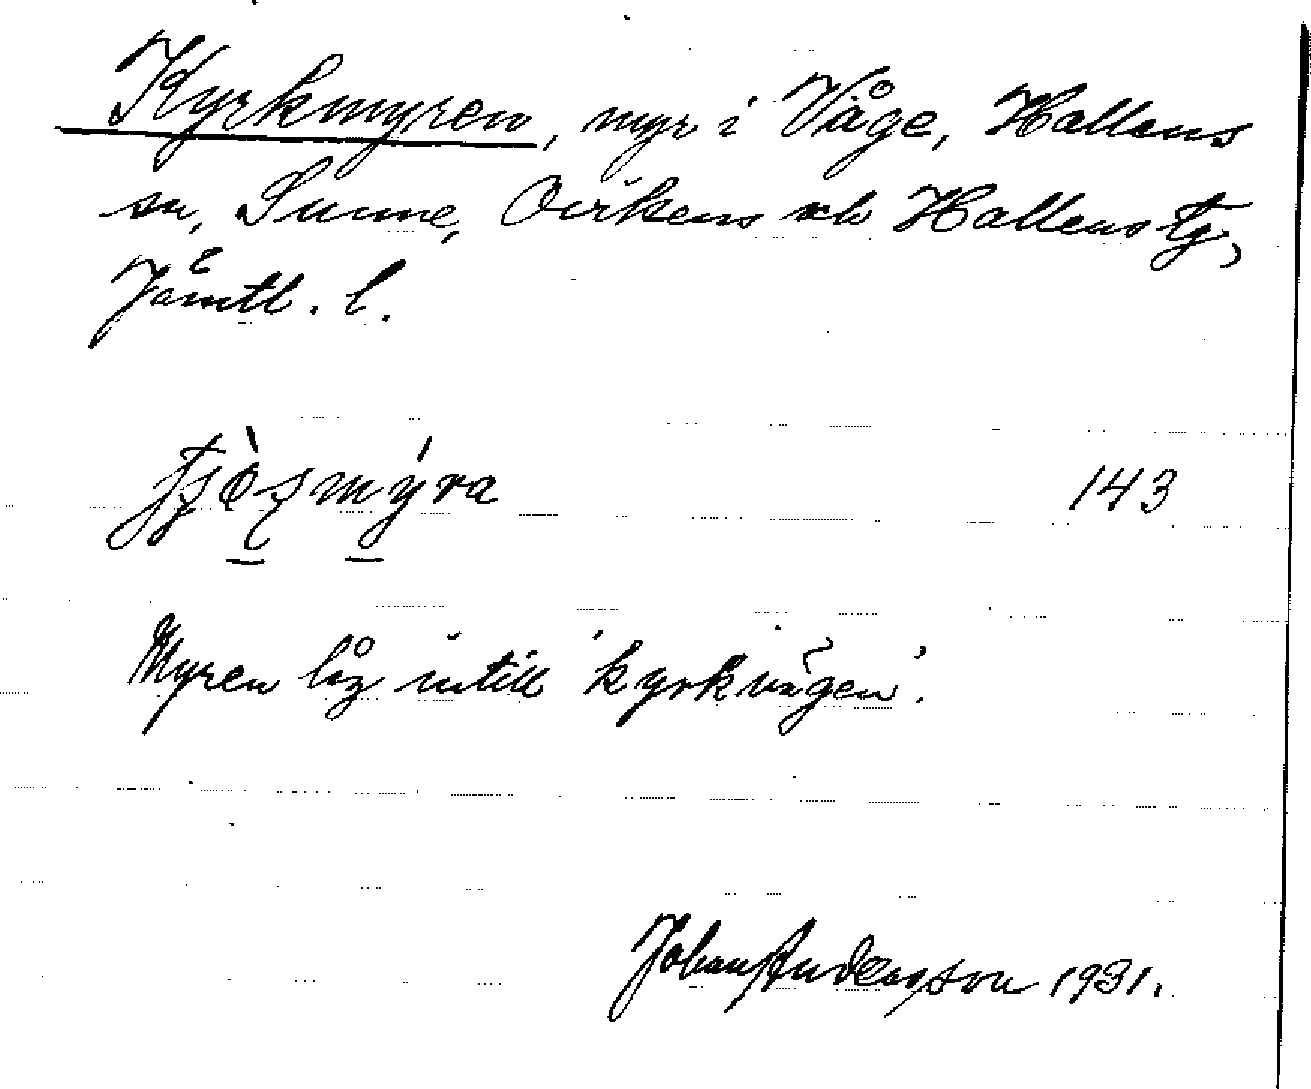 Kyrkmyren, myr i Våge, Hallens
sn, Sunne, Ovikens och Hallens tg,
Jämtl. l.
143
Myren låg intill 'kyrkvägen'.
Johan Anderson 1931.